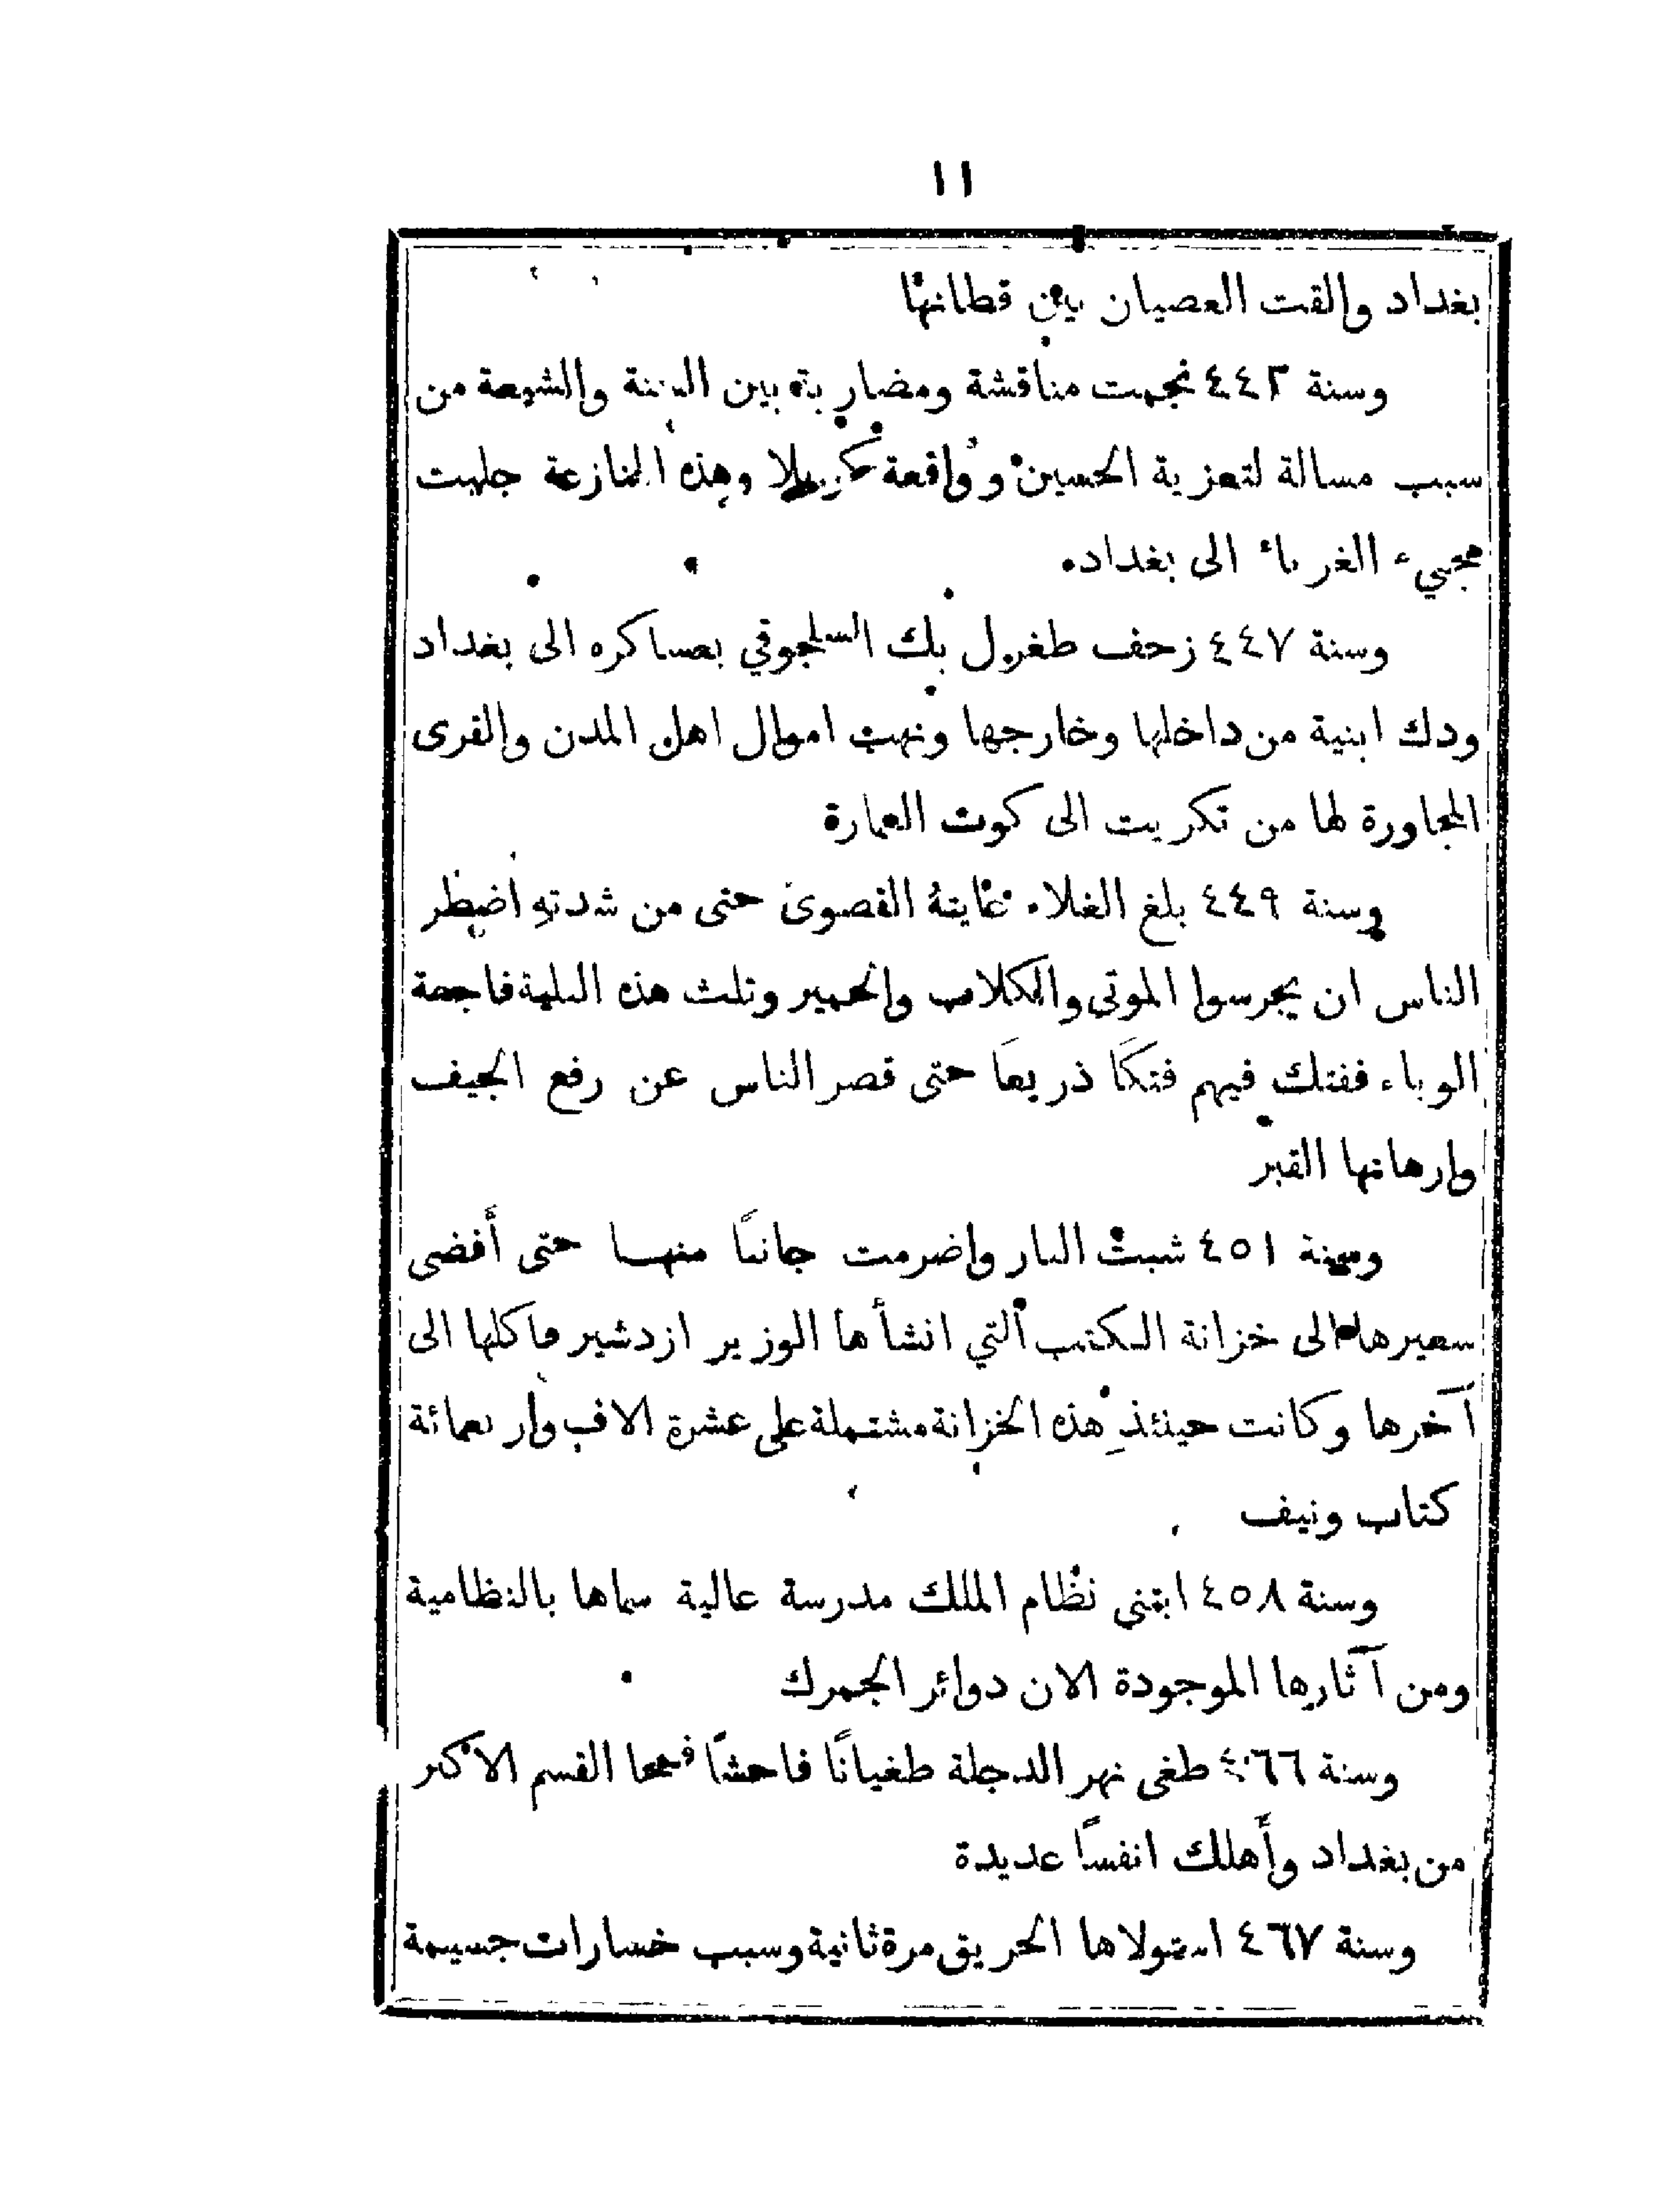 ١١
بغداد والقت العصيان بين قطانها
وسنة ٤٤٢ نجمت مناقشة ومضاربة بين السنة والشيعة من
سبب مسالة لتعزية الحسين وواقعة كربلا وهذه المنازعة جلبت
مجيء الغرباء الى بغداد
وسنة ٤٤٧ زحف طغرل بك السلجوقي بعساكره الى بغداد
ودك ابنية من داخلها وخارجها ونهب اموال اهل المدن والقرى
المجاورة لها من تكريت الى كوت العمارة
وسنة ٤٤٩ بلغ الغلاء غايتهُ القصوى حتى من شدتهِ اضطر
الناس ان يجرسوا الموتى والكلاب والحمير وتلث هذه البلية فاجعة
الوباء ففتك فيهم فتكًا ذريعًا حتى قصر الناس عن رفع الجيف
وارهانها القبر
وسنة ٤٥١ شبت النار واضرمت جانبًا منها حتى أفضى
سعيرها الى خزانة الكتب التي انشأها الوزير ازدشير فاكلها الى
آخرها وكانت حينئذٍ هذه الخزانة مشتملة على عشرة الاف واربعمائة
كتاب ونيف
وسنة ٤٥٨ ابتنى نظام الملك مدرسة عالية سماها بالنظامية
ومن آثارها الموجودة الان دوائر الجمرك
وسنة ٤٦٦ طغى نهر الدجلة طغيانًا فاحشًا فمحا القسم الاكبر
من بغداد وأهلك انفسًا عديدة
وسنة ٤٦٧ استولاها الحريق مرة ثانية وسبب خسارات جسيمة